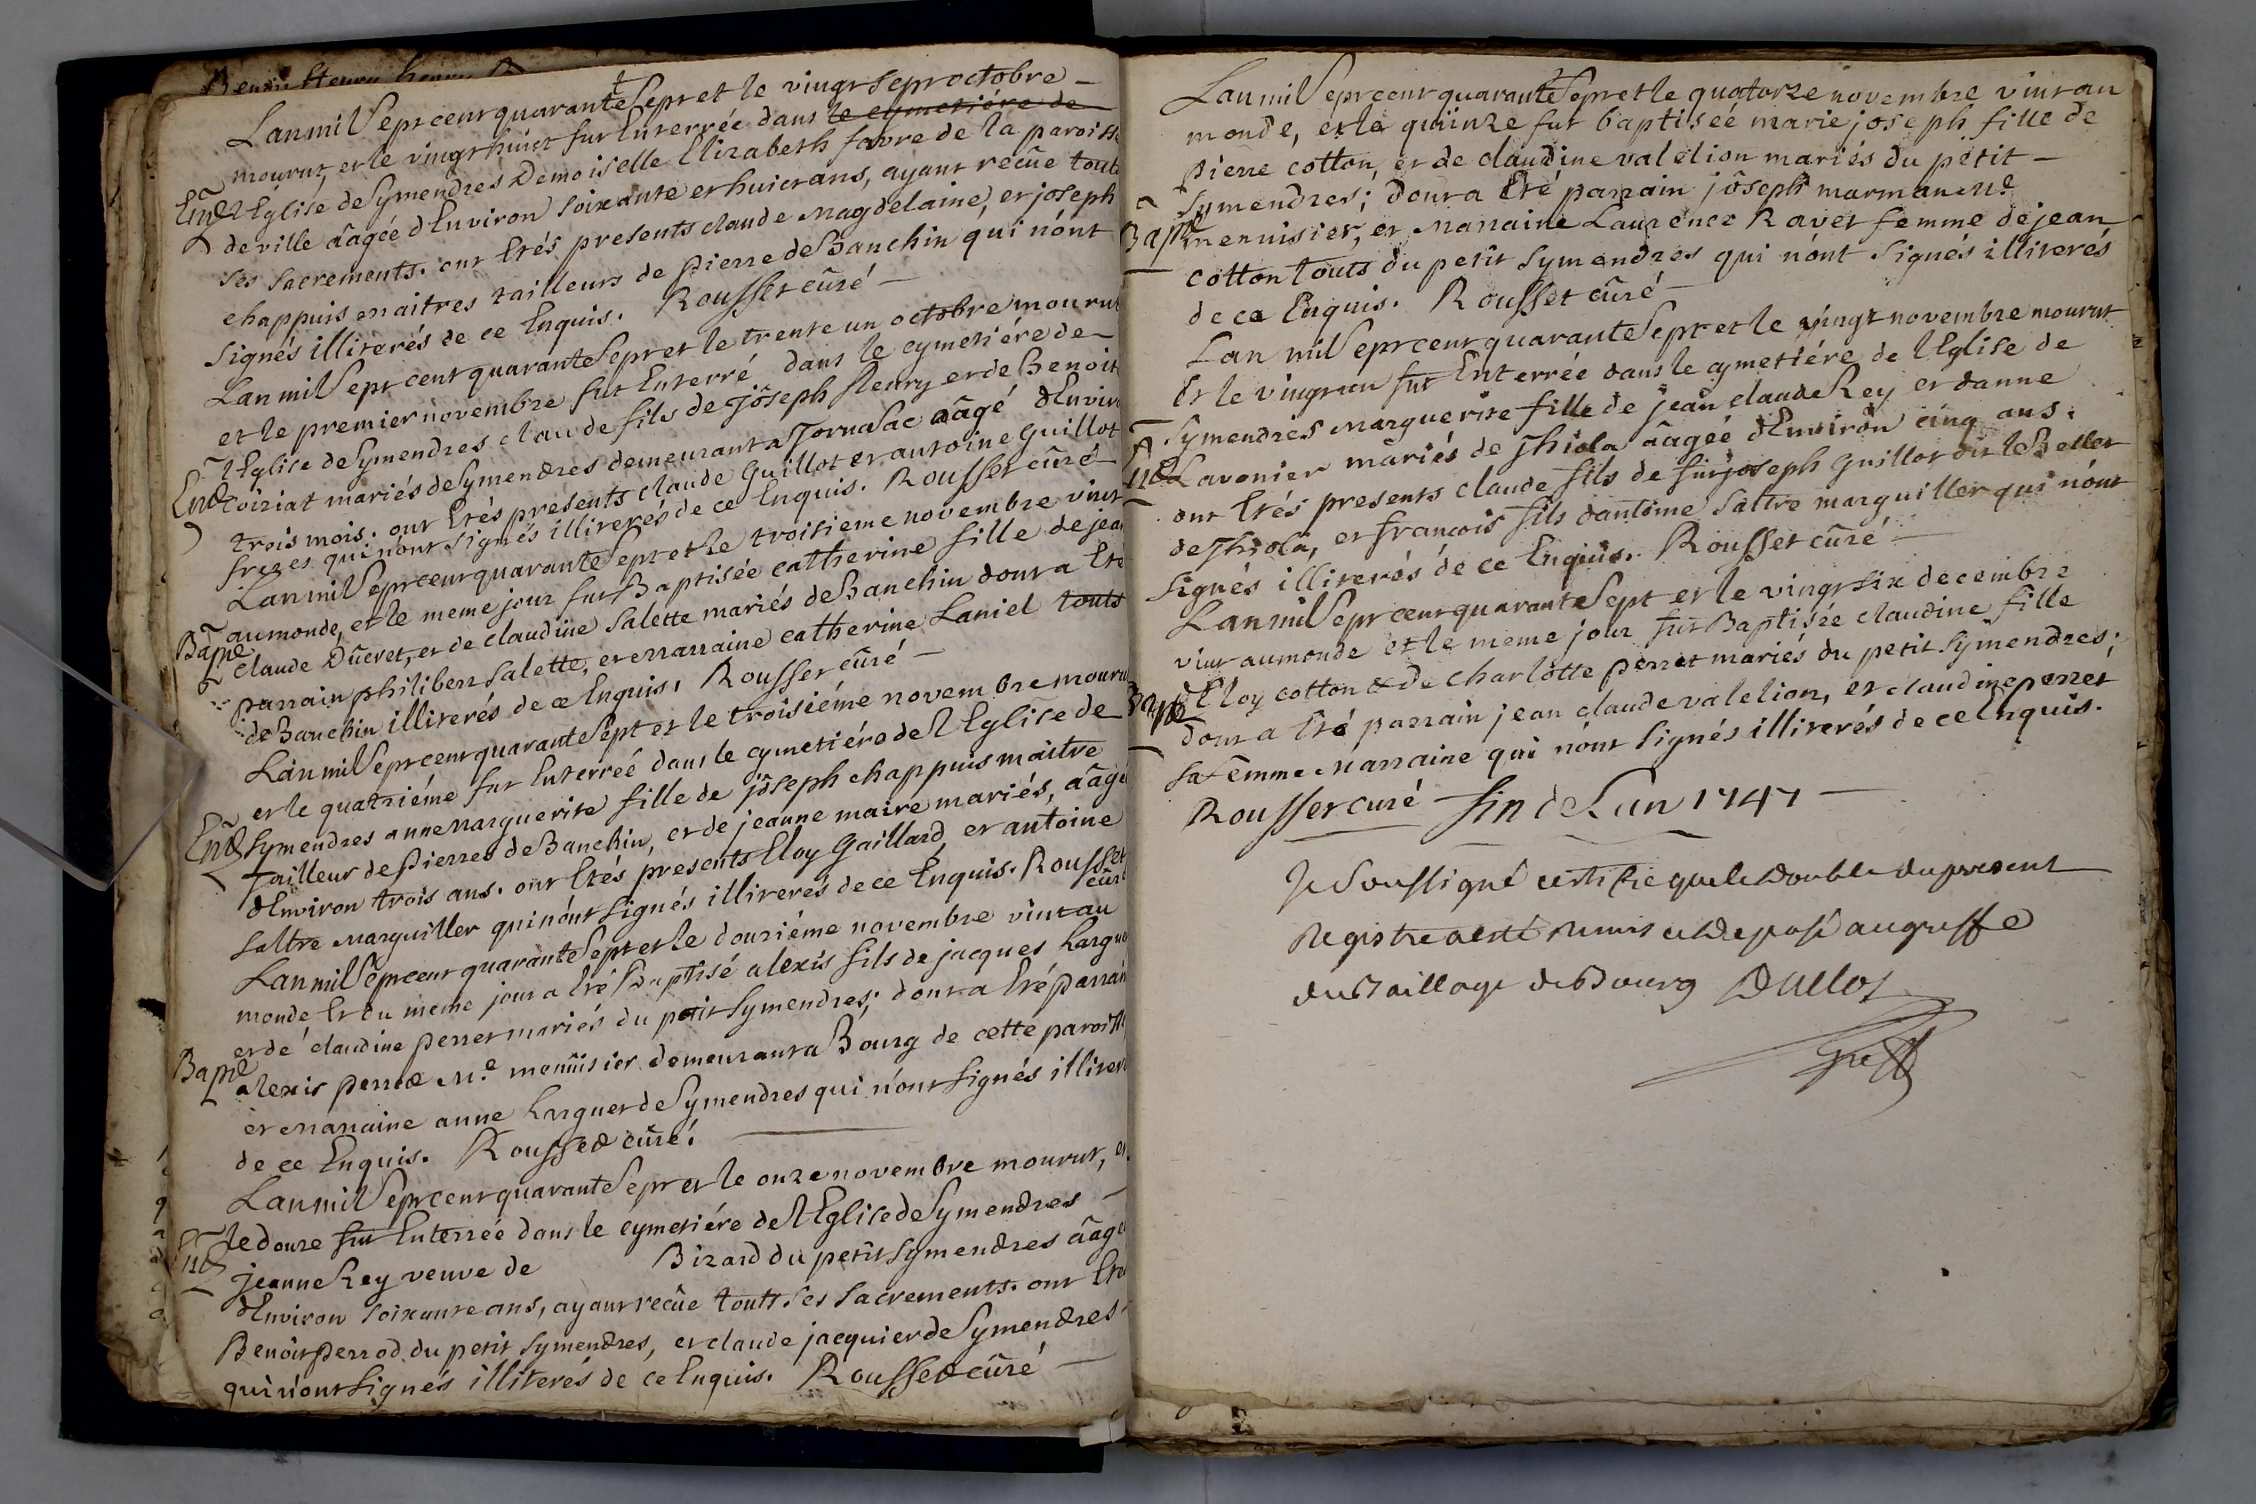 Lan mil Sept cent quarante Sept et le vingt sept octobre
mourut, et le vingt huict fut Enterrée dans le cymetiére de
Ent l'Eglise de Symendres Demoiselle Elizabeth favre de la paroisse
de ville aâgée d'Environ soixante et huict ans, ayant recûe touts
ses sacrements. ont Etés presents claude Magdelaine, et joseph
chappuis maitres tailleurs de pierre de Banchin qui n'ont
signés illiterés de ce Enquis. Rousset cûré
Lan mil Sept cent quarante Sept et le trente un octobre mourut
et le premier novembre fut Enterré dans le cymetiére de
l'Eglise de Symendres claude fils de joseph fleury et de Benoite
Ent voiriat mariés de Symendres demeurant a Jornasac aâgé d'Environ
trois mois. ont Etés presents claude Guillot et antoine Guillot
freres qui n'ont signés illiterés de ce Enquis. Rousset cûré
Lan mil Sept cent quarante Sept et le troisieme novembre vint
au monde, et le meme jour fut Baptisée catherine fille de jean
Bapt claude Dûcret, et de claudine Salette mariés de Banchin dont a Eté
parrain philibert Salette, et marraine catherine Laniel touts
de Banchin illiterés de ce Enquis. Rousset cûré
Lan mil Sept cent quarante Sept et le troisiéme novembre mourut
et le quatriéme fut Enterreé dans le cymetiére de l'Eglise de
Ent Symendres anne Marguerite fille de joseph chappuis maitre
Tailleur de Pierres de Banchin, et de jeanne maire mariés, aâgée
d'Environ trois ans. ont Etés presents Eloy Gaillard et antoine
Saltre Marguiller qui n'ont signés illiterés de ce Enquis. Rousset
cûré
Lan mil Sept cent quarante Sept et le douziéme novembre vint au
monde Et du meme jour a Eté Baptisé alexis fils de jacques Larguet
et de claudine perret mariés du petit Symendres; dont a Eté Parrain
Bapt alexis perrod M.e menuisier demeurant a Bourg de cette paroisse
et marraine anne Larguet de Symendres qui n'ont signés illiterés
de ce Enquis. Rousset cûré.
Lan mil Sept cent quarante Sept et le onze novembre mourut, et
le douze fut Enterrée dans le cymetiére de l'Eglise de Symendres
Ent jeanne Rey veuve de Bizard du petit Symendres aâgée
d'Environ soixante ans, ayant recûe touts ses sacrements. ont Etés
Benoit perrod du petit Symendres, et claude jacquier de Symendres
qui n'ont signés illiterés de ce Enquis. Rousset cûré
Lan mil Sept cent quarante Sept et le quatorze novembre vint au
monde, et le quinze fut baptiséé marie joseph fille de
Pierre cotton, et de claudine valelion mariés du petit
Symendres; dont a Eté parrain joseph marman M.e
Bapt menuisier, et Marraine Laurence Ravet femme de jean
cotton touts du petit Symendres qui n'ont signés illiterés
de ce Enquis. Rousset cûré
Lan mil Sept cent quarante Sept et le vingt novembre mourut
Et le vingt un fut Enterrée dans le cymetiére de l'Eglise de
Symendres Marguerite fille de jean claude Rey et danne
Ent Lavonier mariés de Thiola aâgée d'Environ cinq ans.
ont Etés presents claude fils de fut joseph Guillot dit le Bellet
de Thiola, et francois fils d'antoine Saltre marguiller qui n'ont
signés illiterés de ce Enquis. Rousset cûré
Lan mil Sept cent quarante Sept et le vingt six decembre
vint au monde et le meme jour fut Baptisée claudine fille
Bapt d'Eloy cotton & de charlotte perret mariés du petit Symendres;
dont a Eté parrain jean claude valelion, et claudine perret
sa femme Marraine qui n'ont signés illiterés de ce Enquis.
Rousset curé fin de Lan 1747
Je Soussigné certiffie que le double du present
Registre a esté remis et deposé au greffe
du Baillage de Bourg Dullos
Greff